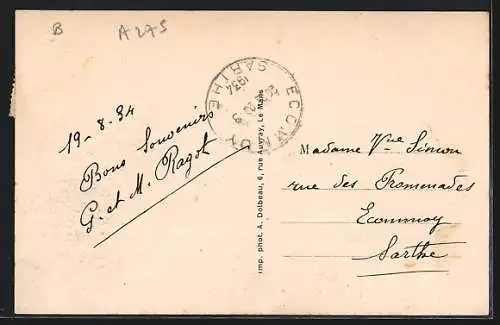 B
A 275
19-8-34
Bons Souvenirs
G. et M. Ragot
SARTHE
1934
Imp. phot. A. Dolbeau, 6, rue Auvray, Le Mans
Madame Vve Simon
rue des Promenades
Ecommoy
Sarthe